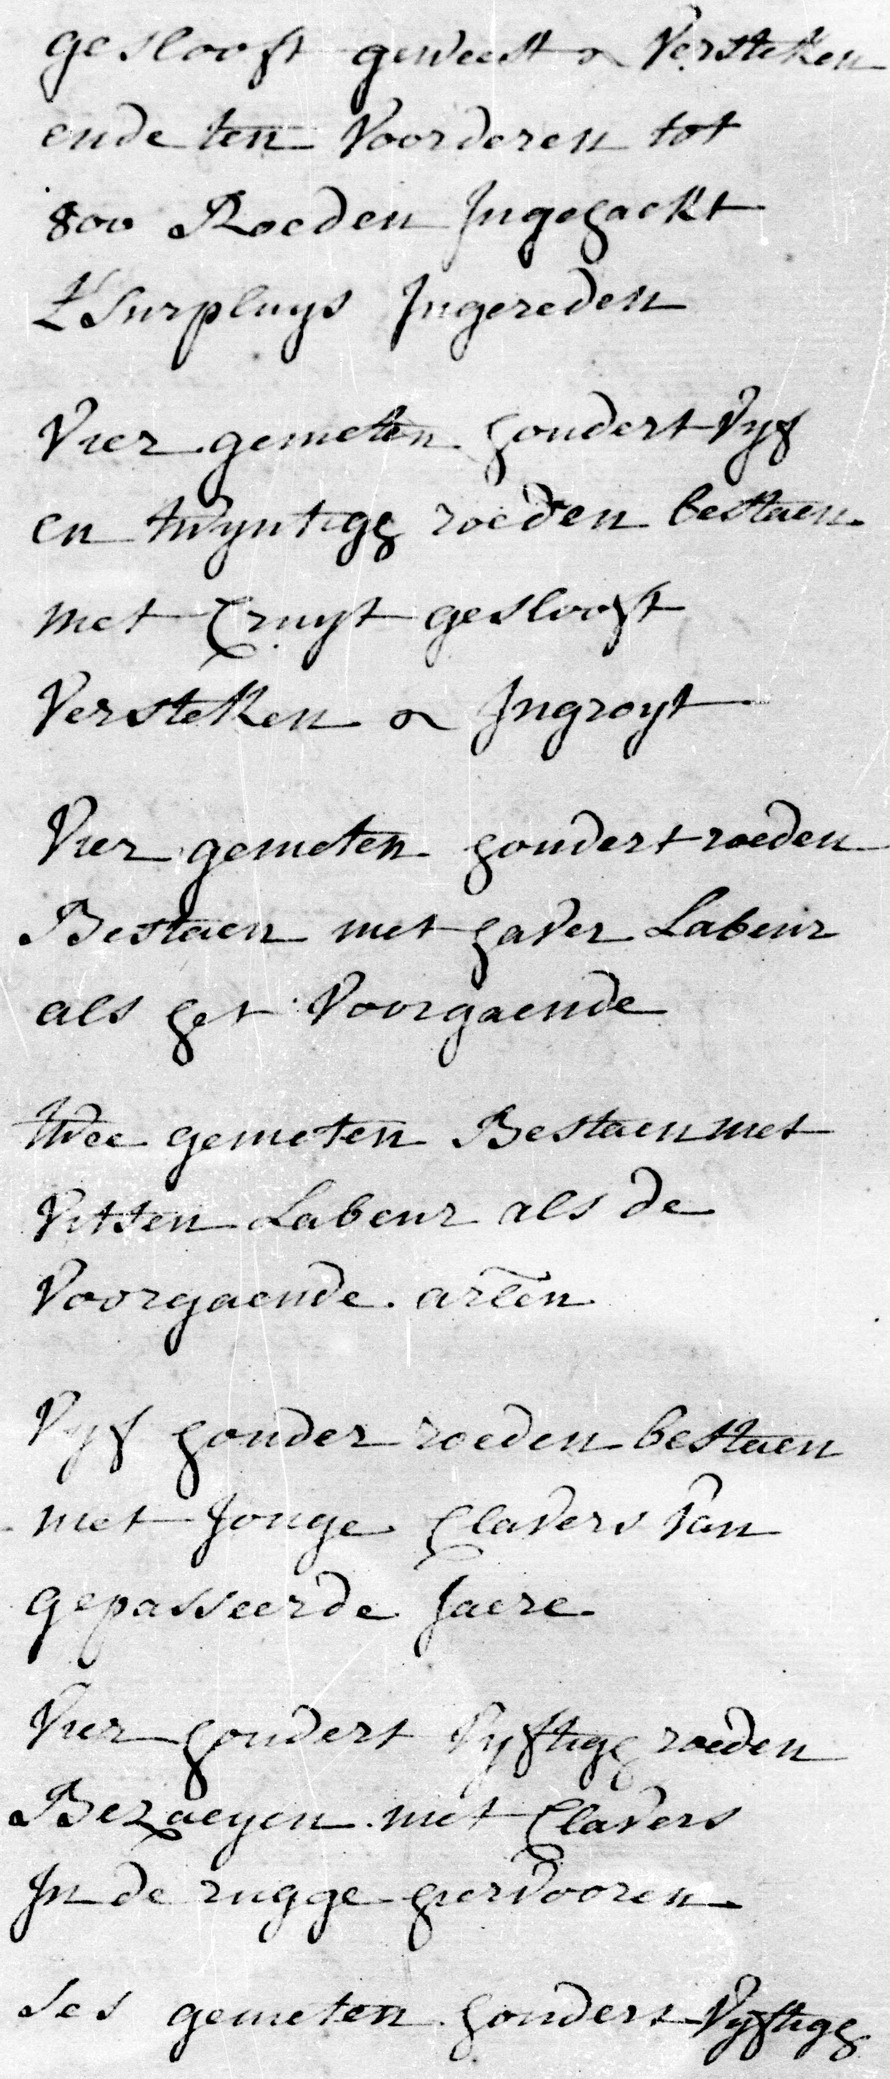 geslooft geweest & Versteken
ende ten Voorderen tot
800 Roeden Ingehackt
t'surpluys Ingereden
Vier gemeten hondert Vyf
en twyntigh roeden bestaen
met Cruyt geslooft
Versteken & Ingroyt
Vier gemeten hondert roeden
Bestaen met haver Labeur
als het Voorgaende
twee gemeten Bestaen met
Vitsen Labeur als de
Voorgaende arlen
Vyf honder roeden bestaen
met Jonge Clavers Van
gepasseerde Jaere
Vier hondert Vyftigh roeden
Bezaeyen met Clavers
In de rugge hier Vooren
ses gemeten hondert Vyftigh